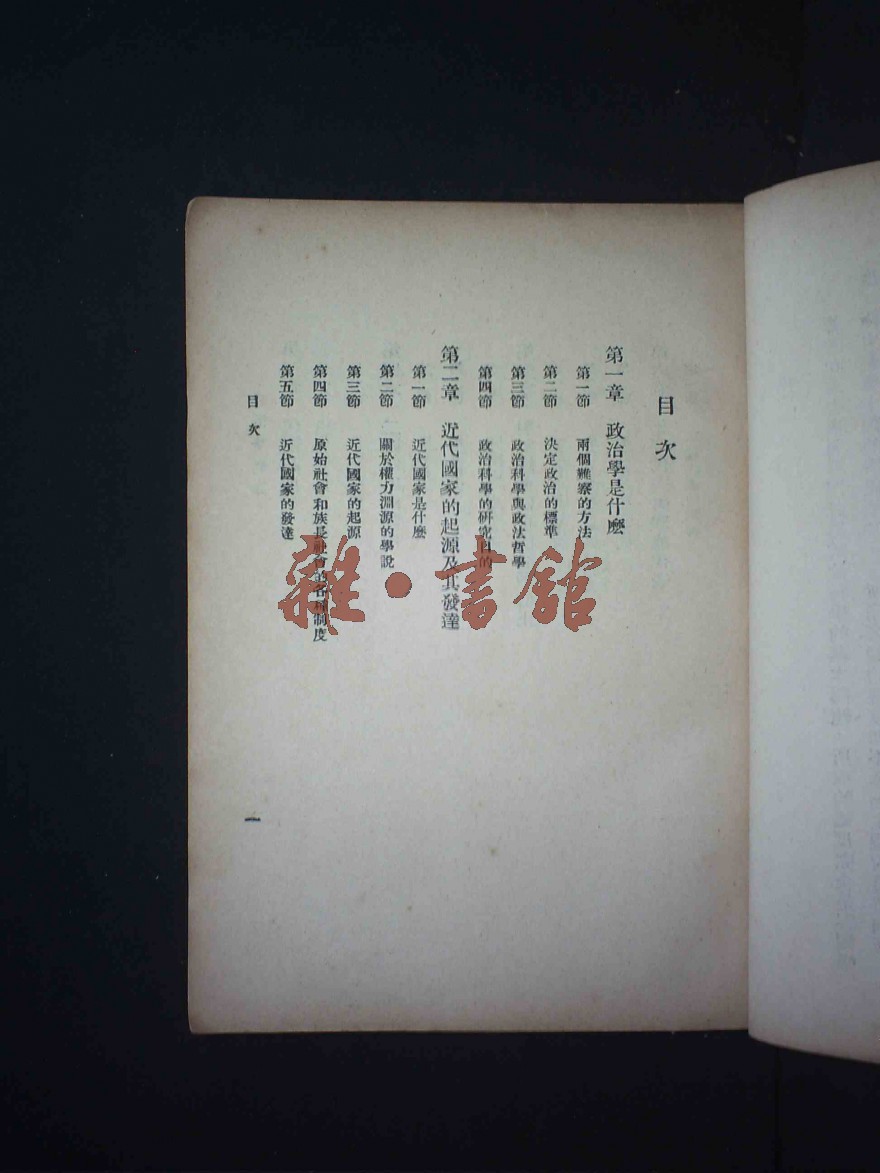 目次
第一章 政治學是什麽
第一節 兩個觀察的方法
第二節 決定政治的標準
第三節 政治科學與政法哲學
第四節 政治科學的研究目的
第二章 近代國家的起源及其發達
第一節 近代國家是什麽
第二節 關於權力淵源的學說
第三節 近代國家的起源
第四節 原始社會和族長社會的各種制度
第五節 近代國家的發達
目次
一
雜·書館